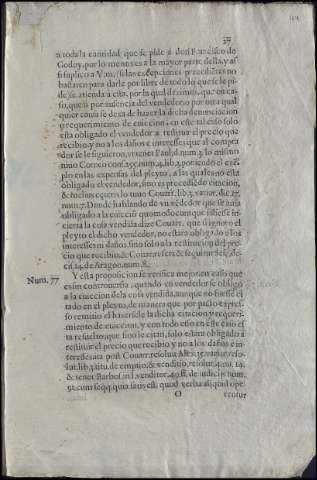 a toda la cantidad que se pide a don Francisco de
Godoy, por lo menos es a la mayor parte della, y as
si suplico a V.m. si las excepciones precedentes no
bastaren para darle por libre de todo lo que se le pi
de, se atienda a esta, por la qual dezimos, que en ca
so, que si por ausencia del vendedor o por otra qual
quier causa se dexa de hazer la dicha denunciacion
y requerimiento de euiccion, en este tal caso solo
està obligado el vendedor a restituir el precio que
recibio, y no a los daños e intereses que al compra
dor se le siguieron, vt tenet Paul. d. num. 3. lo mismo
tuuo Corneo cons. 255. num. 4. lib. 2. poniendo el exē
plo en las expensas del pleyto, a las quales no està
obligado el vendedor, sino es precediẽdo citacion,
& melius equeis lo tuuo Couarr. lib. 3. variar.
num. 7. Donde hablando de vn vẽdedor que se auia
obligado a la euiccion quomodocumque
la cosa vendida dize Couarr. que si ignorò el
pleyto el dicho vendedor, no estarà obligado a los
interesses ni daños sino solo a la restitucion del pre
cio que recibio, & Couarr. refert & sequitur
cis. 14. de Aragon. num. 8.
Num. 77 Y esta proposicion se verifica mejor en caso que
es sin controuersia, quando el vendedor se obligò
a la euiccion de la cosa vendida, aunque no fuesse ci
tado en el pleyto, de manera que por pacto expres
so remitio el hazersele la dicha citacion y requeri
miento de euiccion, y con todo esso en este caso es
tà resuelto, que sino le citan, solo estarà obligado a
restituir el precio que recibio y no a los daños e
interesses ita post Couarr. resoluit
lut. lib. 3. titu. de emptio. & venditio, resolut. 4. nu. 14.
& tenet Barbos. in l. venditor. 49. ff. de iudicijs num.
52. cum seqq. quia satis est, quod verba aliquid ope
O rentur